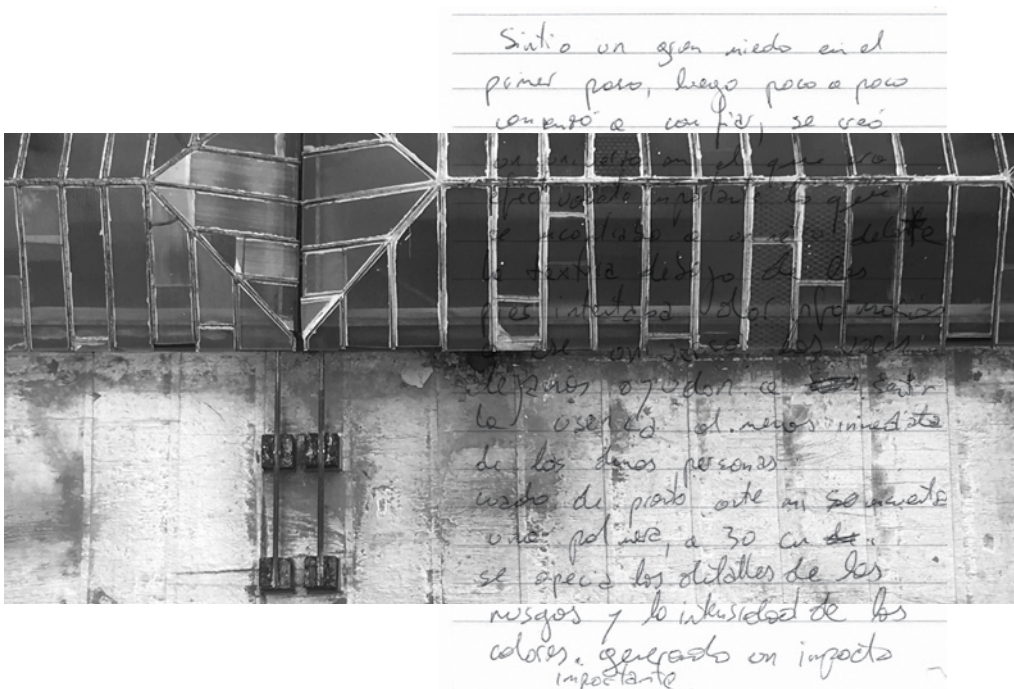 Sintio un gran miedo en el
primer paso, luego poco a poco
comenzó a confiar, se creó
un en el que era
importante lo que
se a
la textura debajo de los
pies intentaba dar información
a ese un
lejanos ayudan a sentir
la usencia al menos inmediata
de las demas personas.
cuado de pronto ante mi se encuentra
una palmera, a 30 cm
se apecia los ditalles de los
musgos y la intensidad de los
colores. generando un impacto
importante